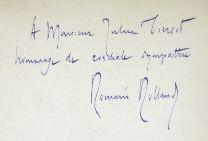 A Monsieur Julien Tiersot
hommage de cordiale sympathie
Romain Rolland